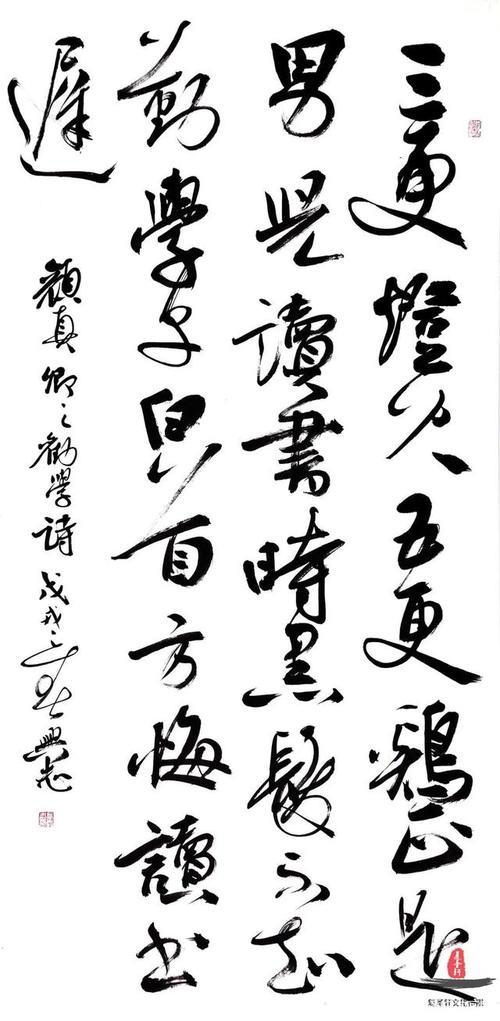 三更燈火五更鷄正是
男兒讀書時黑髮不知
勤學早白首方悔讀书
遲
顏真卿之勸學詩 戊戌之春興志